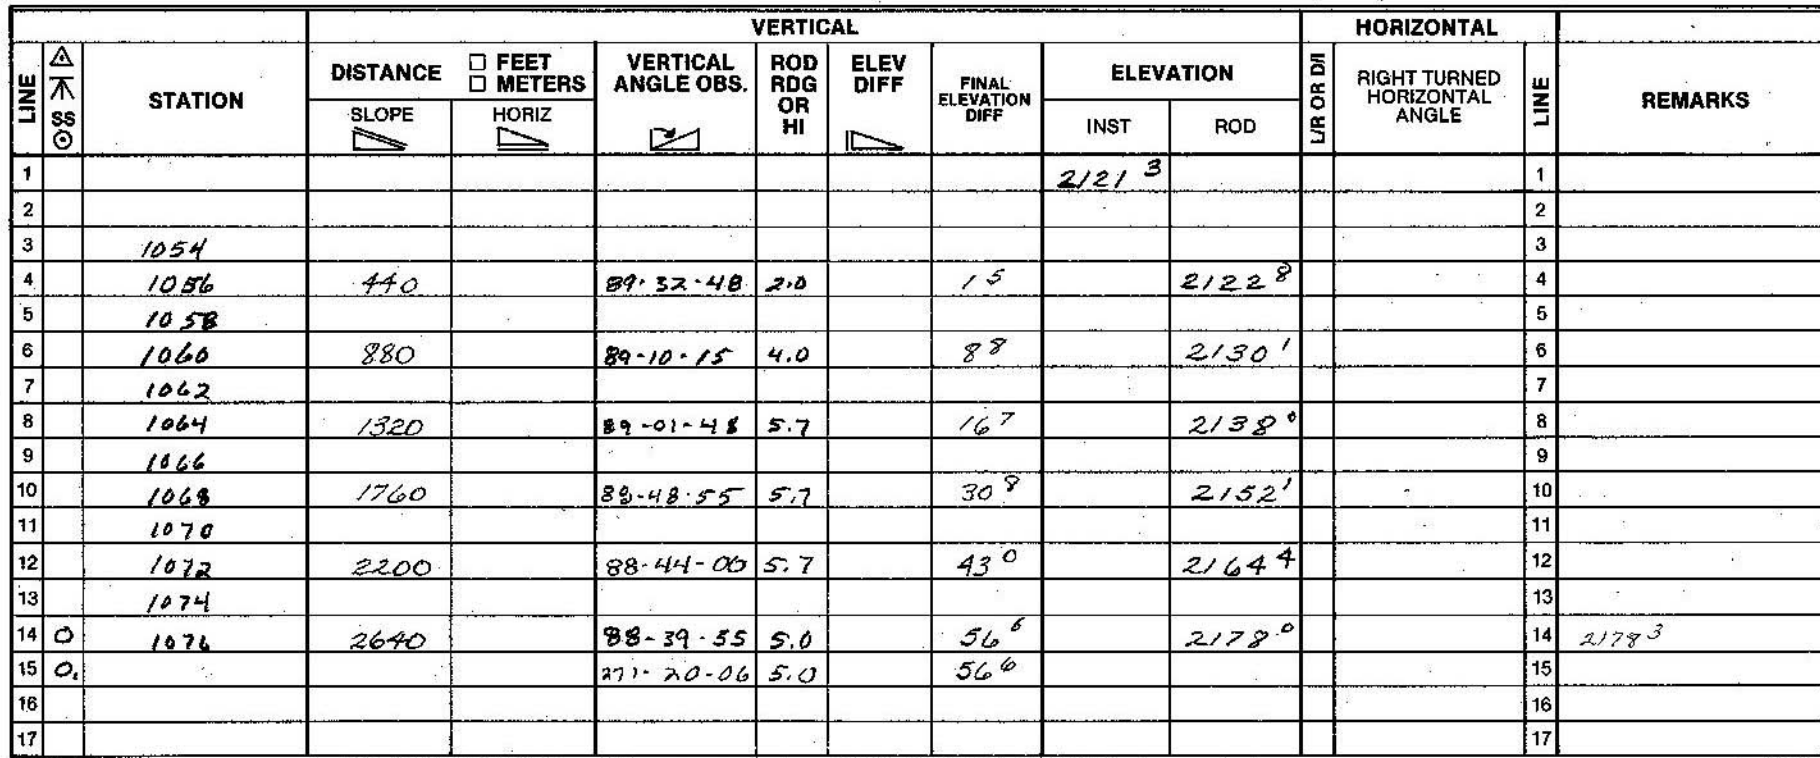 VERTICAL HORIZONTAL
LINE SS STATION DISTANCE □ FEET □ METERS SLOPE HORIZ VERTICAL ANGLE OBS. ROD RDG OR HI ELEV DIFF FINAL ELEVATION DIFF ELEVATION INST ROD L/R OR D/I RIGHT TURNED HORIZONTAL ANGLE LINE REMARKS
1 2121 3 1
2 2
3 1054 3
4 1056 440 89-32-48 2.0 1 5 2122 8 4
5 1058 5
6 1060 880 89-10-15 4.0 8 8 2130 1 6
7 1062 7
8 1064 1320 89-01-48 5.7 16 7 2138 0 8
9 1066 9
10 1068 1760 88-48-55 5.7 30 8 2152 1 10
11 1070 11
12 1072 2200 88-44-00 5.7 43 0 2164 4 12
13 1074 13
14 O 1076 2640 88-39-55 5.0 56 6 2178 0 14 2178 3
15 O 271-20-06 5.0 56 6 15
16 16
17 17